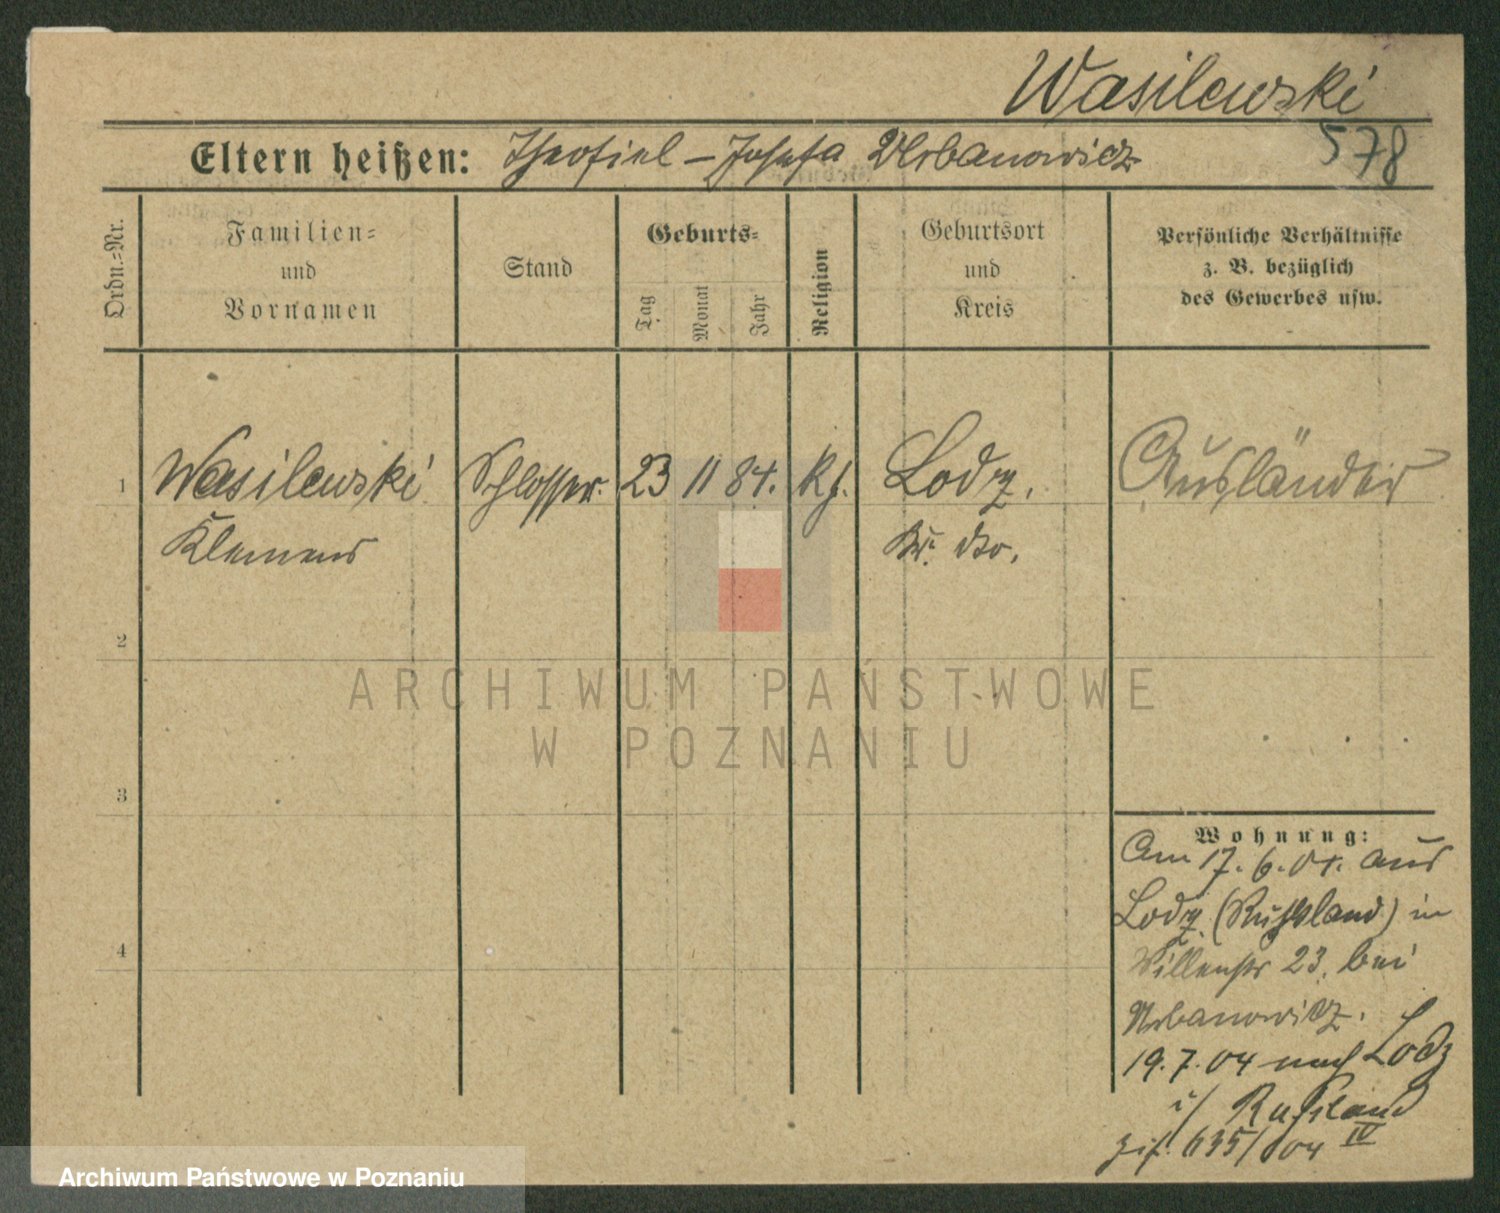 Wasilewski
578
Eltern heißen: Theofiel – Josefa Urbanowicz
Ordn.-Nr.
Familien-
und
Vornamen
Stand
Geburts-
Tag
Monat
Jahr
Religion
Geburtsort
und
Kreis
Persönliche Verhältnisse
z. B. bezüglich
des Gewerbes usw.
1 Wasilewski Schlosser. 23 11 84. kf. Lodz. Ausländer
Klemens Kr. dto.
2
3
4
ARCHIWUM PAŃSTWOWE
W POZNANIU
Wohnung:
Am 17. 6. 04. aus
Lodz. (Rußland) in
23. bei
Urbanowicz.
19. 7. 04 nach Lodz
i/ Rußland
635/04 IV
Archiwum Państwowe w Poznaniu